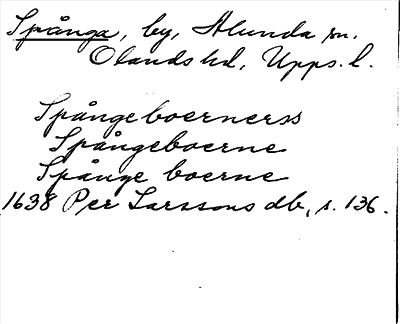 Spånga, by, Alunda sn.
Olands hd, Upps. l.
Spångeboernerss
Spångeboerne
Spånge boerne
1638 Per Larssons db, s. 136.